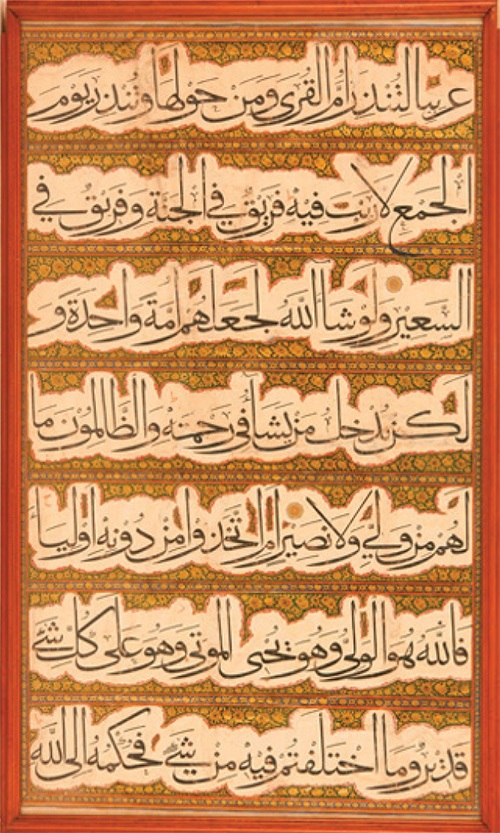 عربيا لتنذر ام القرى ومن حولها وتنذر يوم
الجمع لا ريب فيه فريق في الجنة وفريق في
السعير ولو شاء الله لجعلهم امة واحدة و
لكن يدخل من يشاء في رحمته والظالمون ما
لهم من ولي ولا نصير ام اتخذوا من دونه اولياء
فالله هو الولي وهو يحيى الموتى وهو على كل شيء
قدير وما اختلفتم فيه من شيء فحكمه الى الله